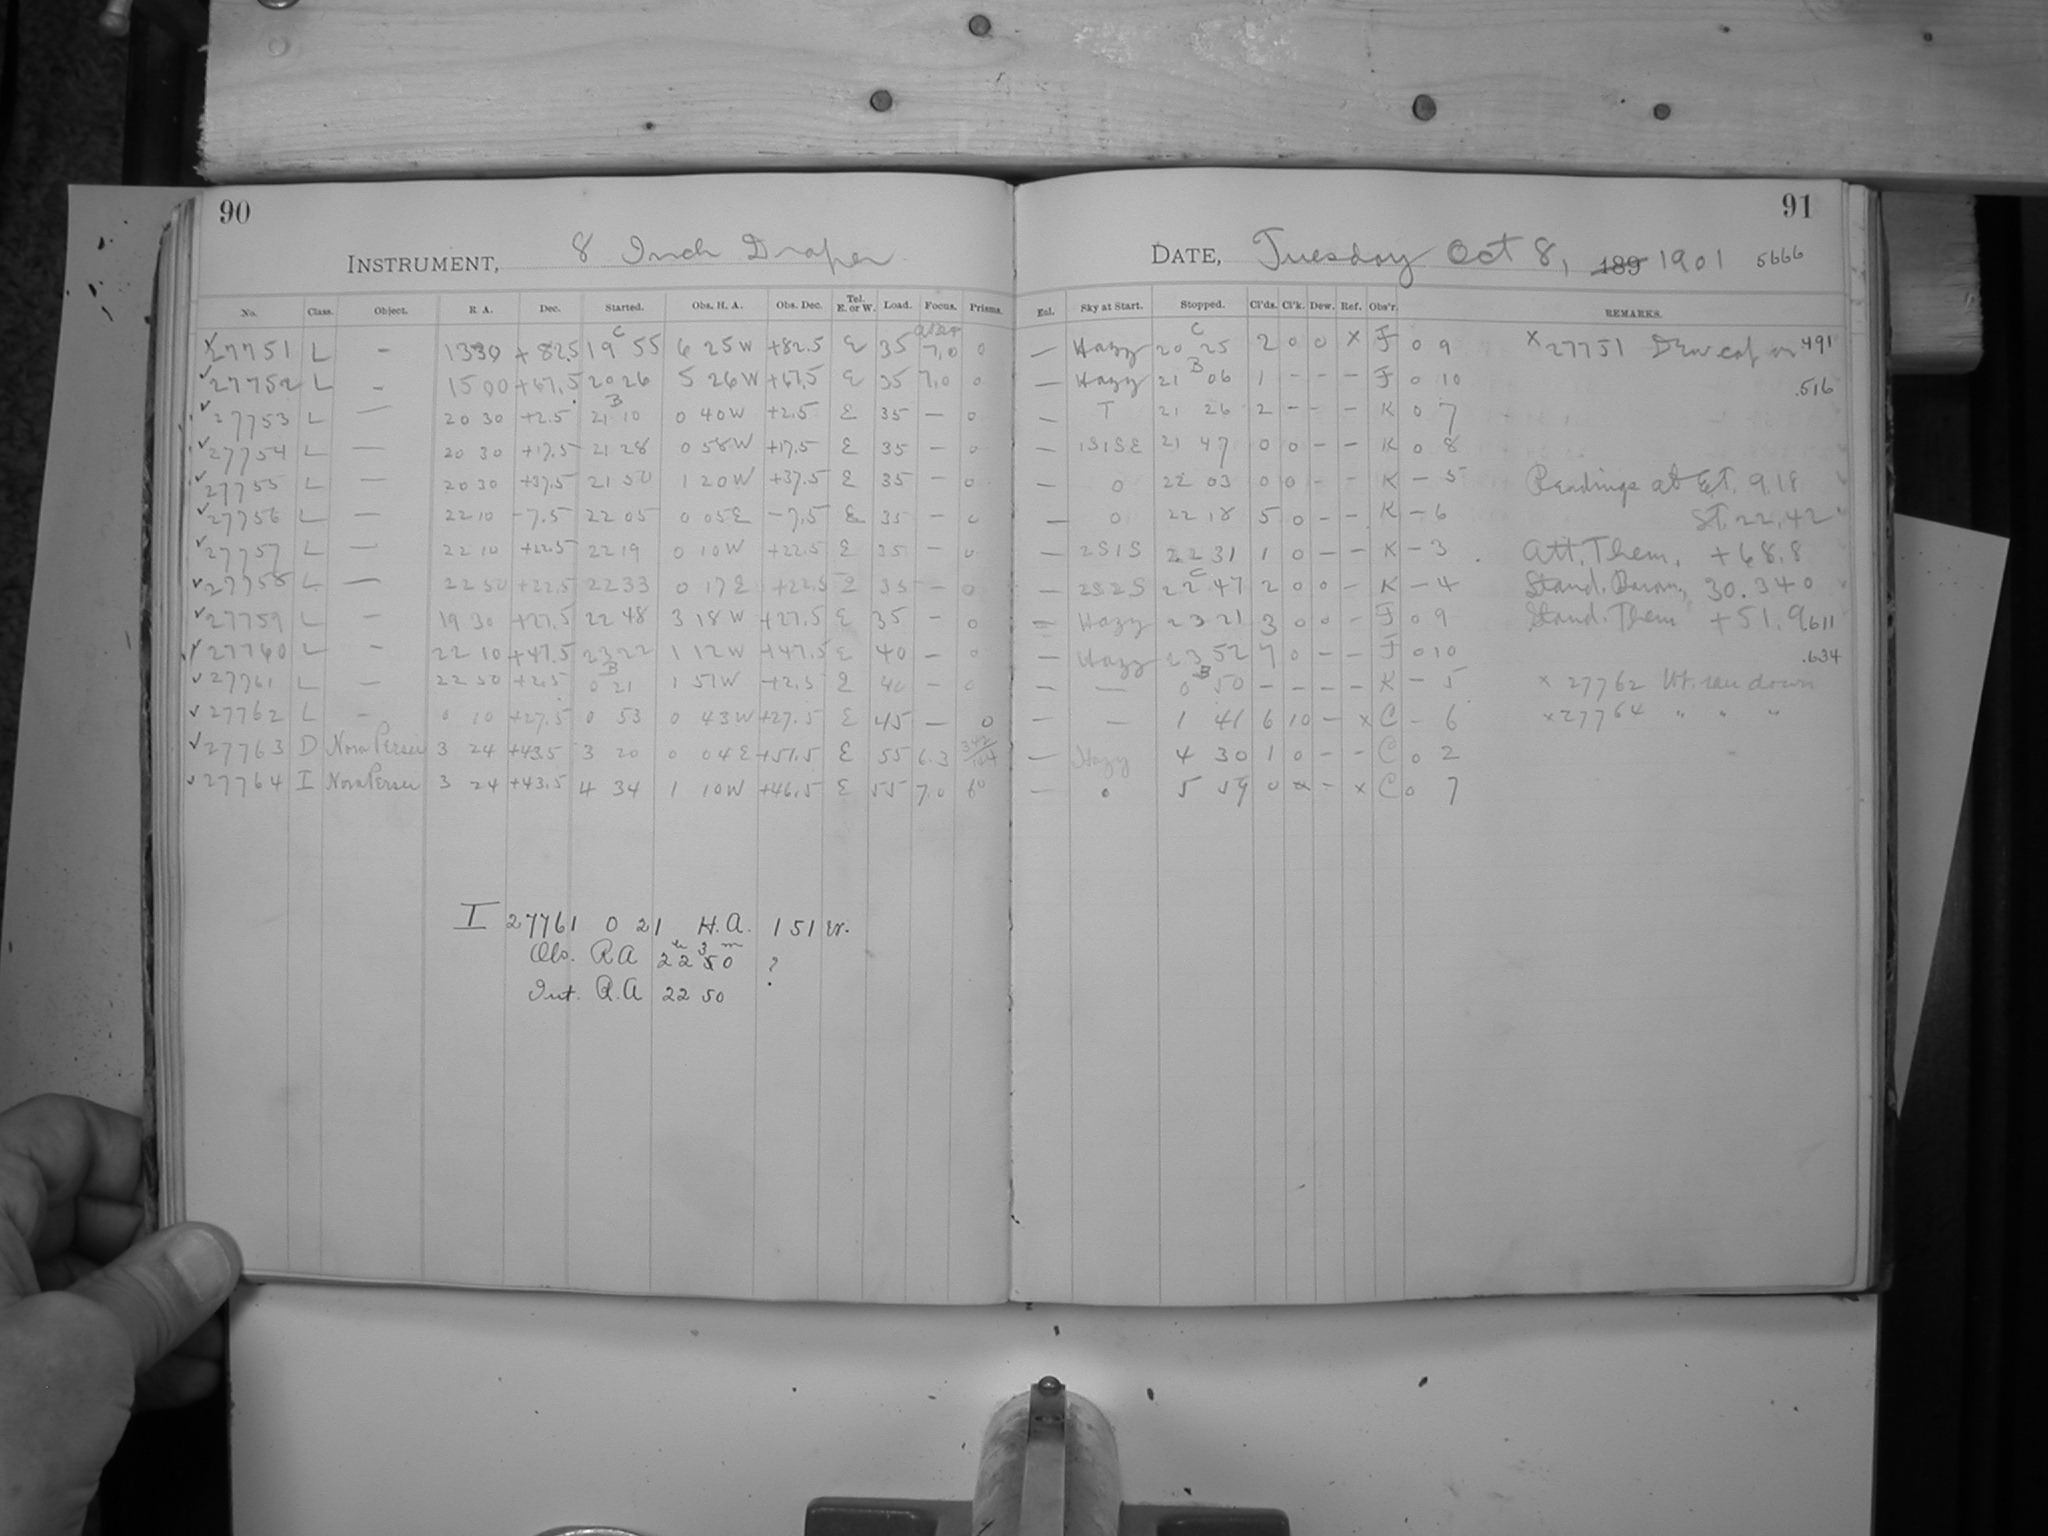 90
INSTRUMENT, 8 Inch Draper
No. Class. Object. R. A. Dec. Started. Obs. H. A. Obs. Dec. Tel. E. or W. Load. Focus. Prisms.
C
27751 L – 1330 +82.5 19 55 6 25 W +82.5 E 35 7.0 0
27752 L – 1500 +67.5 20 26 5 26 W +67.5 E 35 7.0 0
B
27753 L — 20 30 +2.5 21 10 0 40 W +2.5 E 35 – 0
27754 L — 20 30 +17.5 21 28 0 58 W +17.5 E 35 – 0
27755 L — 20 30 +37.5 21 50 1 20 W +37.5 E 35 – 0
27756 L — 22 10 -7.5 22 05 0 05 E -7.5 E 35 – 0
27757 L — 22 10 +22.5 22 19 0 10 W +22.5 E 35 – 0
27758 L — 22 50 +22.5 22 33 0 17 E +22.5 E 35 – 0
27759 L – 19 30 +27.5 22 48 3 18 W +27.5 E 35 – 0
27760 L – 22 10 +47.5 23 22 1 12 W +47.5 E 40 – 0
B
27761 L – 22 50 +2.5 0 21 1 51 W +2.5 E 40 – 0
27762 L – 0 10 +27.5 0 53 0 43 W +27.5 E 45 – 0
27763 D Nova Persei 3 24 +43.5 3 20 0 04 E +51.5 E 55 6.3
27764 I Nova Persei 3 24 +43.5 4 34 1 10 W +46.5 E 55 7.0 60
I 27761 0 21 H.A. 1 51 W.
Obs. R A 22 h 3 50 m ?
Int. R.A 22 50
91
DATE, Tuesday Oct 8, 189 1901 5666
Eol. Sky at Start. Stopped. Cl'ds. Cl'k. Dew. Ref. Obs'r. REMARKS.
C
– Hazy 20 25 2 0 0 x F 0 9 x 27751 Dew cap on 491
B
– Hazy 21 06 1 – – – F 0 10 .516
– T 21 26 2 – – – K 0 7
– 1S1SE 21 47 0 0 – – K 0 8
– 0 22 03 0 0 – – K – 5 Readings at E.T. 9.18
– 0 22 18 5 0 – – K – 6 S.T. 22.42
– 2S1S 22 31 1 0 – – K – 3 Att. Therm. +68.8
C
– 2S2S 22 47 2 0 0 – K – 4 Stand. Barom. 30.340
– Hazy 23 21 3 0 0 – F 0 9 Stand. Therm +51.9 .611
– Hazy 23 52 7 0 – – F 0 10 .634
B
– — 0 50 – – – – K – 5 x 27762 Wt. ran down
– – 1 41 6 10 – x C – 6 x 27764 " " "
– Hazy 4 30 1 0 – – C 0 2
– 0 5 59 0 x – x C 0 7